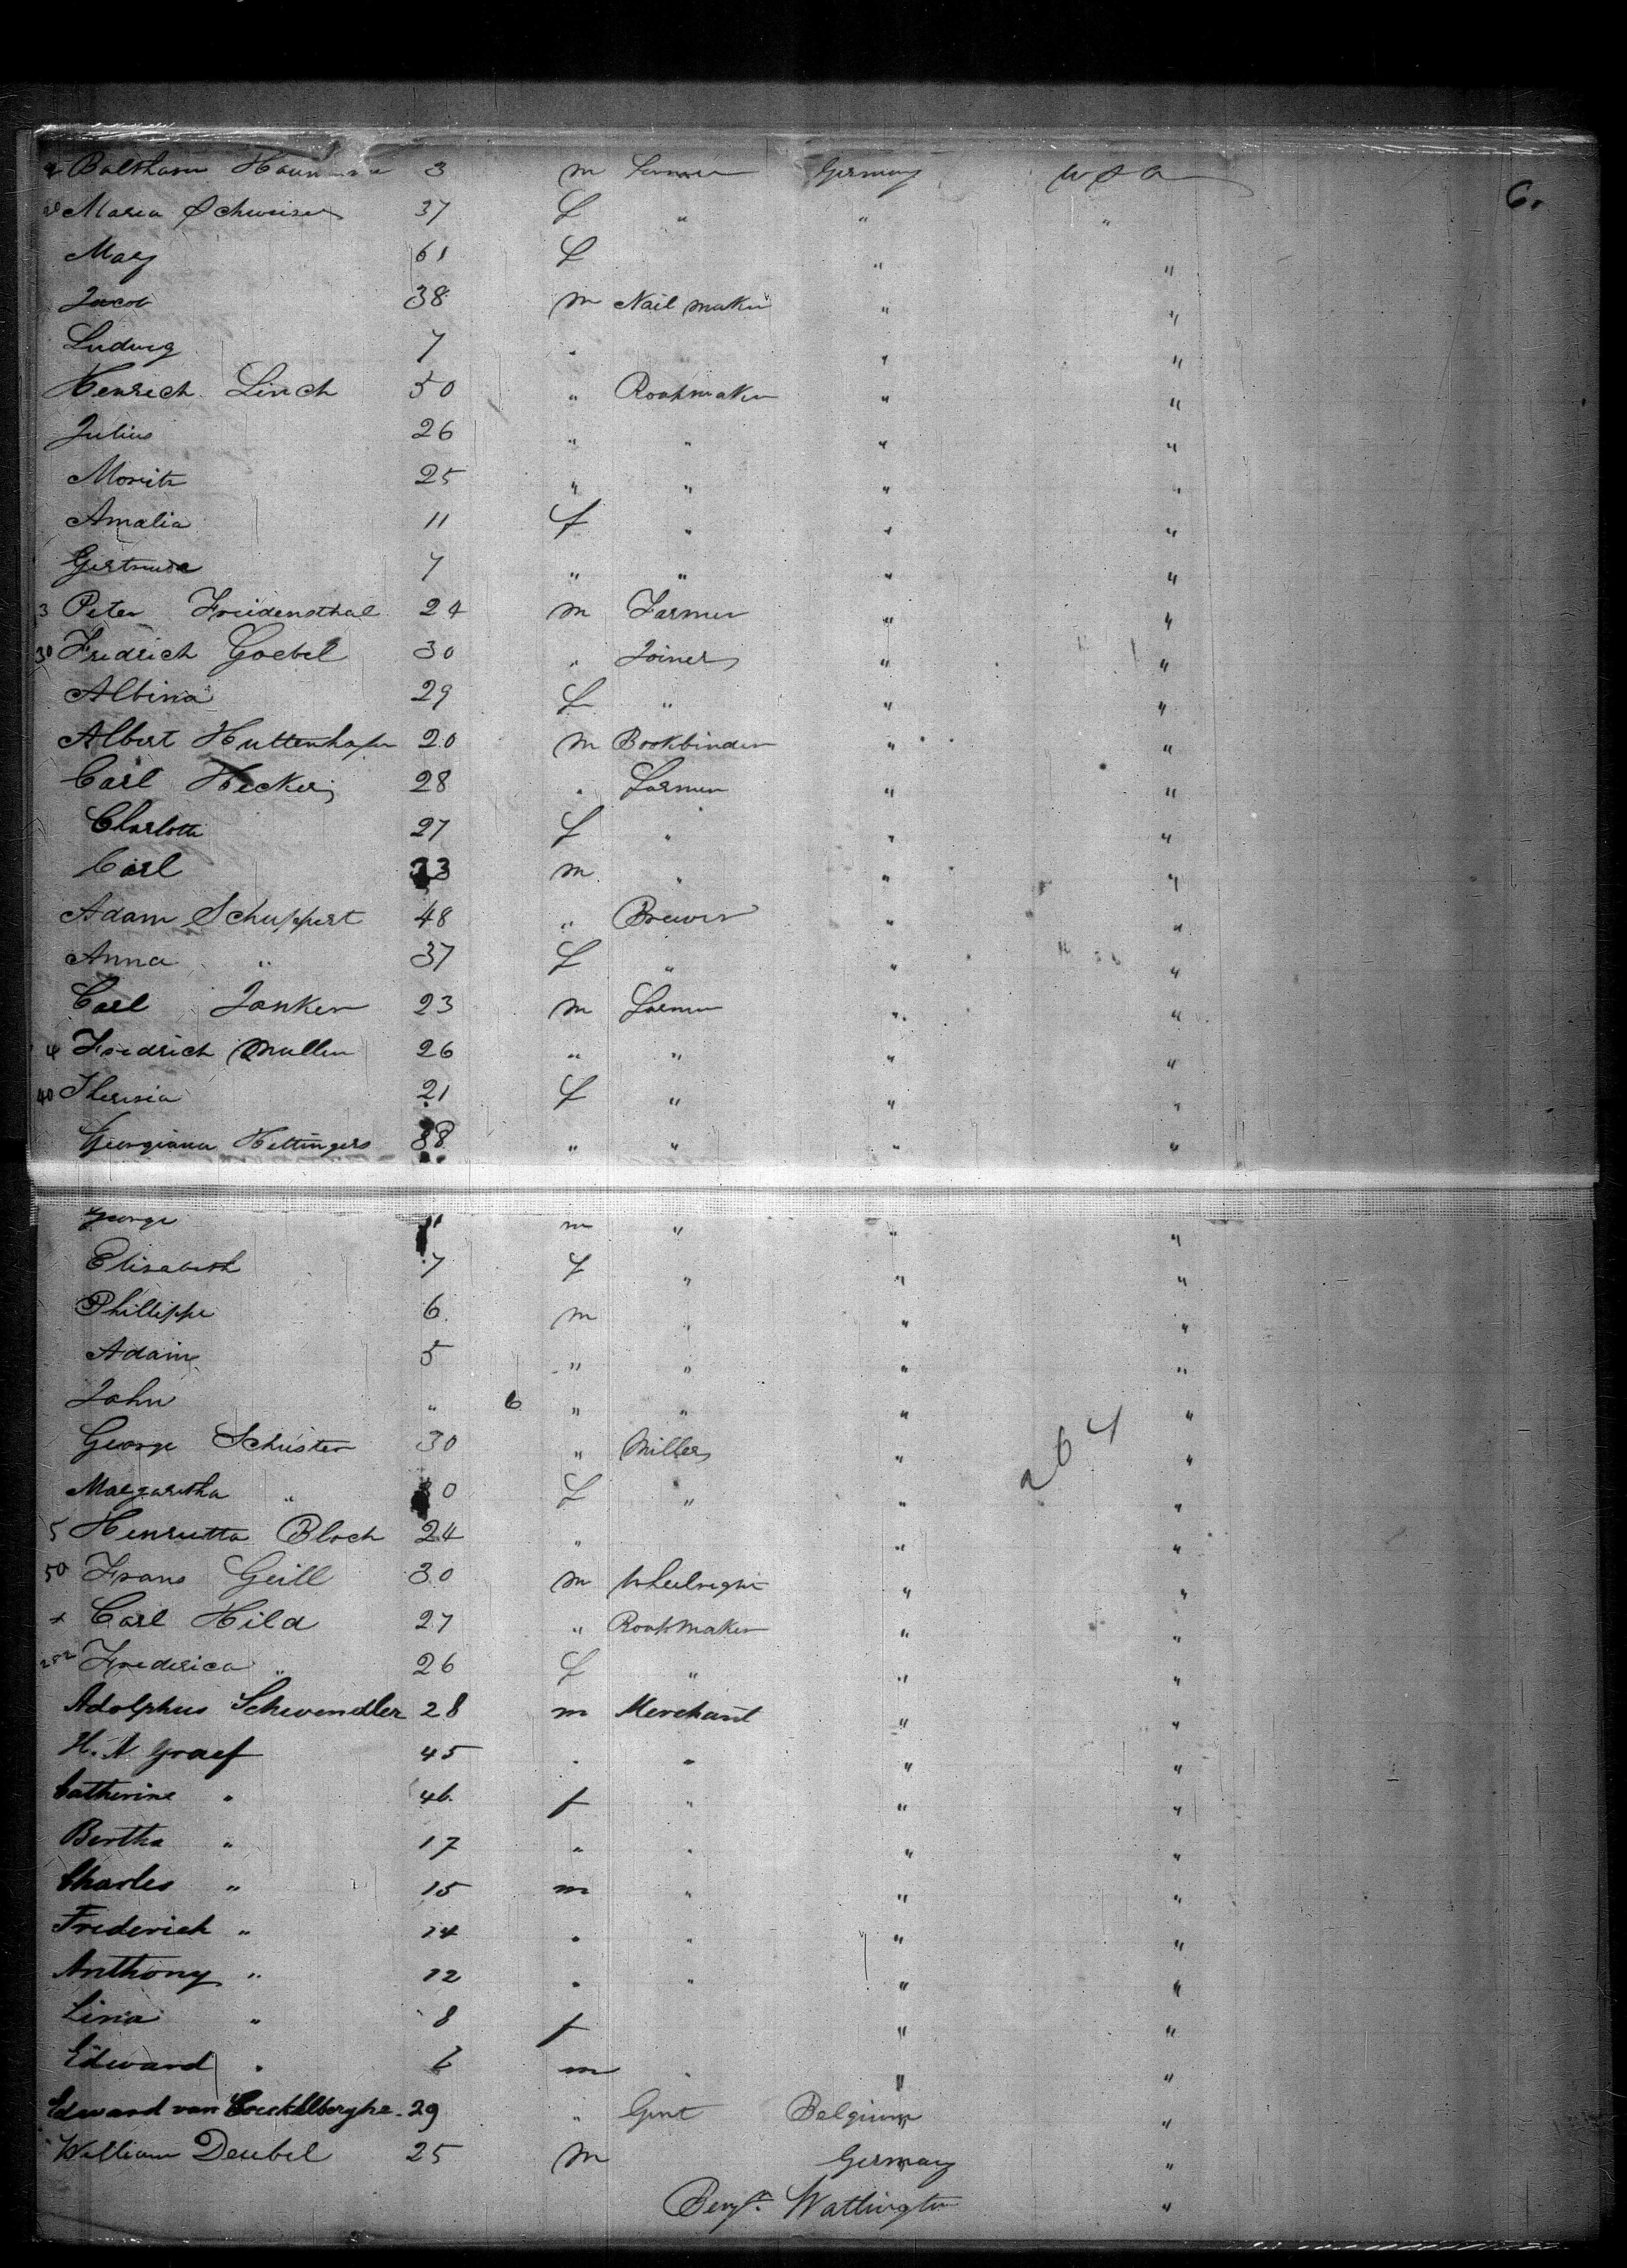 6.
Balthasar 3 m Farmer Germany U S A
Maria Schweiser 37 f " " "
Mary 61 f " "
Jacob 38 m Nail maker " "
Ludwig 7 " " "
Henrich Linch 50 " Rootmaker " "
Julius 26 " " " "
Moritz 25 " " " "
Amalia 11 f " " "
Gertruda 7 " " " "
3 Peter Freidensthal 24 m Farmer " "
30 Fredrich Goebel 30 " Joiner " "
Albina 29 f " " "
Albert Huttenhafer 20 m Bookbinder " "
Carl Hecker 28 " Farmer " "
Charlotte 27 f " " "
Carl m " " "
Adam Schuppert 48 " Brewer " "
Anna " 37 f " " "
Carl Janker 23 m Farmer " "
4 Fredrich Muller 26 " " " "
40 Theresia 21 f " " "
Georgiana Hettingers 38 " " " "
George 11 m " " "
Elisabeth 7 f " " "
Phillippe 6 m " " "
Adam 5 " " " "
John " 6 " " " "
George Schuster 30 " Miller " 264 "
Margaretha " 30 f " " "
5 Henrietta Bloch 24 " " "
50 Frans Geill 30 m Wheelright " "
x Carl Hild 27 " Rootmaker " "
252 Frederica " 26 f " " "
Adolphus Schwendler 28 m Merchant " "
H. N Graef 45 " " " "
Catherine " 46 f " " "
Bertha " 17 " " " "
Charles " 15 m " " "
Frederich " 14 " " " "
Anthony " 12 " " " "
Lina " 8 f " "
Edward " 6 m " " "
Edward van 29 " Gent Belgium "
William Deubel 25 m Germany "
Benjn. Watlington "